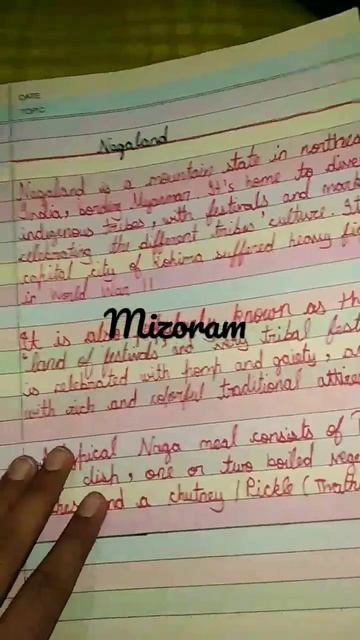 DATE
TOPIC
Nagaland
Nagaland is a mountain state in northeast
India, border Myanmar. It's home to diverse
indigenous tribes, with festivals and
celebrating the different tribes' culture. It
capital city of Kohima suffered heavy
in World War II
It is also known as the
Mizoram
"land of festivals" and every tribal
is celebrated with homp and gaiety,
with rich and colorful traditional attire
typical Naga meal consists of
dish, one or two boiled
and a chutney / Pickle (